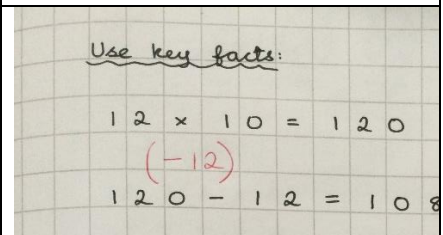 Use key facts:
12 × 10 = 120
(-12)
120 - 12 = 108